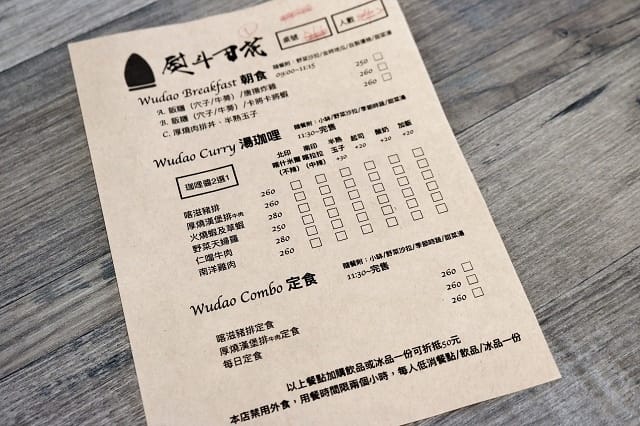 熨斗目花
桌號
人數
Wudao Breakfast 朝食
隨餐附：野菜沙拉/金時地瓜/自製優格/甜菜湯
09:00~11:15
A. 飯糰（穴子/牛蒡）/唐揚炸雞 250
B. 飯糰（穴子/牛蒡）/卡將卡將蝦 260
C. 厚燒肉排丼、半熟玉子 260
Wudao Curry 湯珈哩
隨餐附：小缽/野菜沙拉/季節時蔬/甜菜湯
11:30~完售
珈哩醬2選1
北印 喀什米爾 (不辣)
南印 喀拉拉 (中辣)
半熟 玉子 +30
起司 +20
酸奶 +20
加飯 +20
喀滋豬排 260
厚燒漢堡排牛肉 260
火燒蝦及草蝦 280
野菜天婦羅 250
仁噹牛肉 280
南洋雞肉 260
Wudao Combo 定食
隨餐附：小缽/野菜沙拉/季節時蔬/甜菜湯
11:30~完售
喀滋豬排定食 260
厚燒漢堡排牛肉定食 260
每日定食 260
以上餐點加購飲品或冰品一份可折抵50元
本店禁用外食，用餐時間限兩個小時，每人低消餐點/飲品/冰品一份